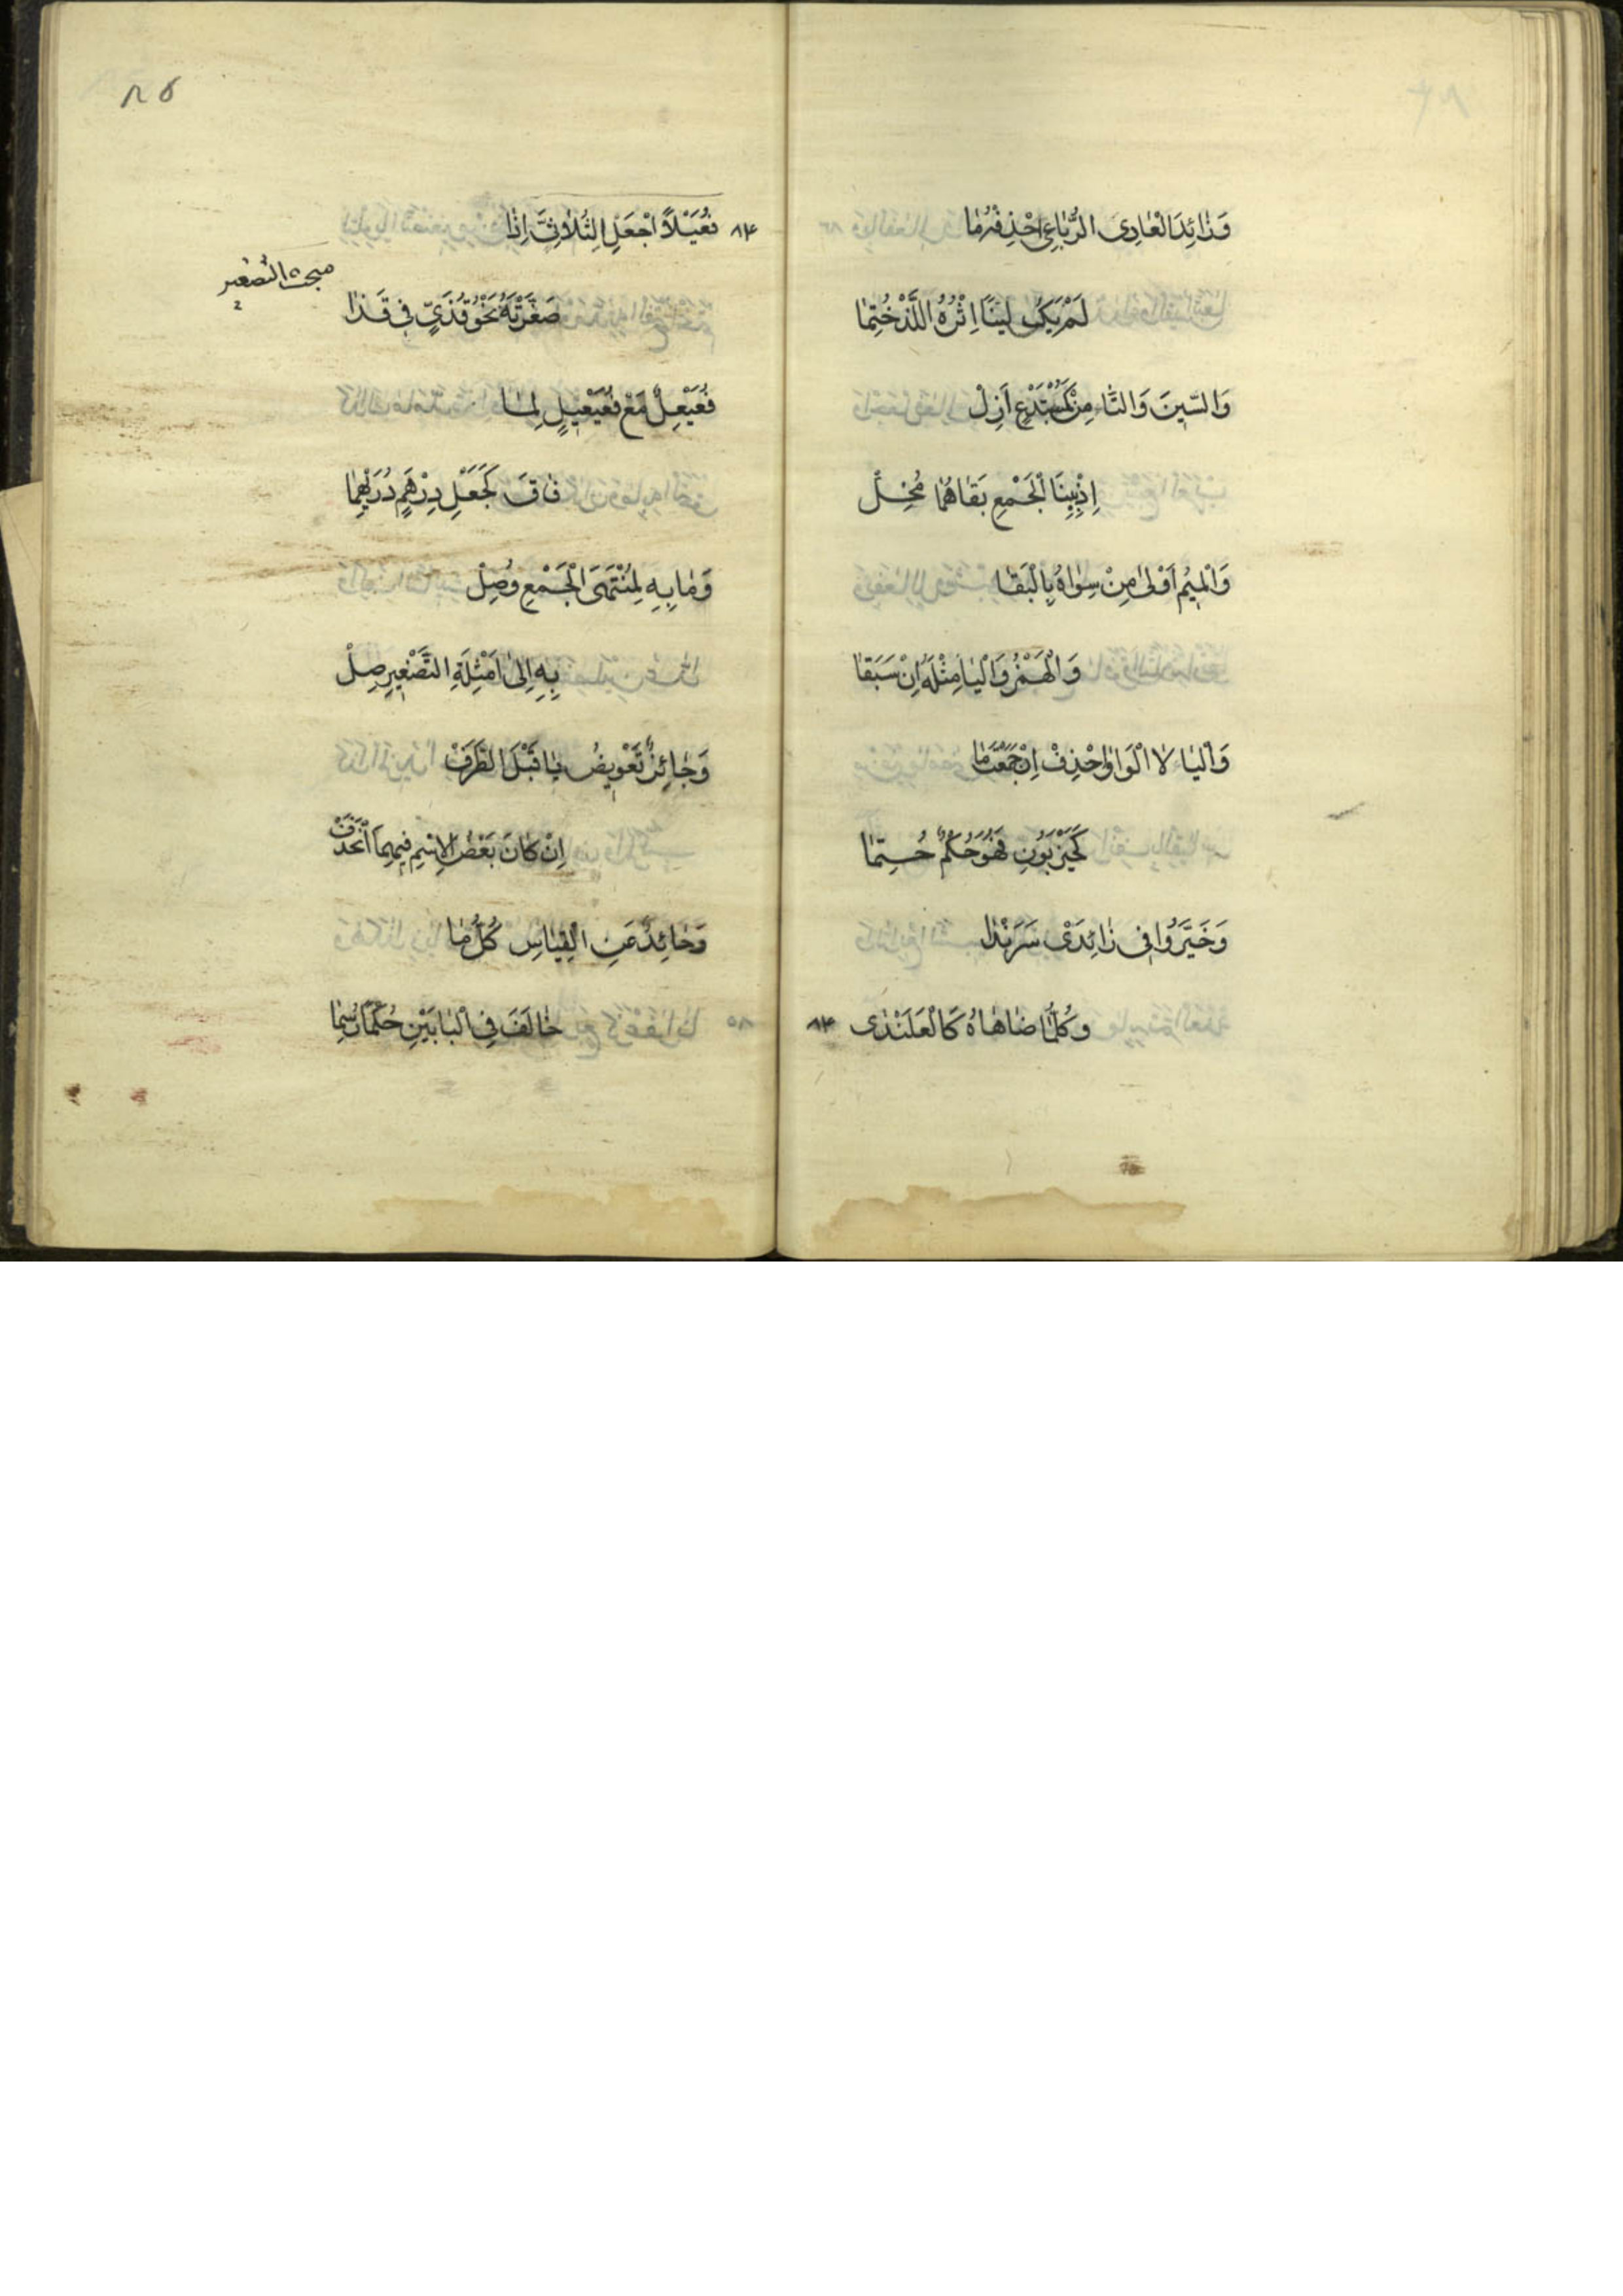 وَزَائِدَ الْعَادِى الرُّبَاعِى احْذِفْهُ مَا
لَمْ يَكُ لَيْنًا اِثْرُهُ اللَّذْ خُتِمَا
وَالسِّينَ وَالتَّا مِنْ كَمُسْتَدْعٍ اَزِلْ
اِذْ بِبِنَا الْجَمْعِ بَقَاهُمَا مُخِلّْ
وَالْمِيمُ اَوْلىٰ مِنْ سِوَاهُ بِالْبَقَا
وَالْهَمْزُ وَالْيَا مِثْلَهُ اِنْ سَبَقَا
وَالْيَا لَا الْوَاوَ احْذِفْ اِنْ جَمَعْتَ مَا
كَحَيْزَبُونٍ فَهُوَ حُكْمٌ حُتِمَا
وَخَيَّرُوا فِى زَائِدَىْ سَرَنْدَا
وَكُلِّ مَا ضَاهَاهُ كَالْعَلَنْدَى ٨٣
٨٥
٨٤ فُعَيْلًا اجْعَلِ الثُّلَاثِىَّ اِذَا
مبحث التصغير
صَغَّرْتَهُ نَحْوُ قُذَىٍّ فِى قَذَا
فُعَيْعِلٌ مَعْ فُعَيْعِيلٍ لِمَا
فَاقَ كَجَعْلِ دِرْهَمٍ دُرَيْهِمَا
وَمَا بِهِ لِمُنْتَهَى الْجَمْعِ وُصِلْ
بِهِ اِلىٰ اَمْثِلَةِ التَّصْغِيرِ صِلْ
وَجَائِزٌ تَعْوِيضُ يَا قَبْلَ الطَّرَفْ
اِنْ كَانَ بَعْضُ الْاِسْمِ فِيهِمَا انْحَذَفْ
وَحَائِدٌ عَنِ الْقِيَاسِ كُلُّ مَا
خَالَفَ فِى الْبَابَيْنِ حُكْمًا رُسِمَا